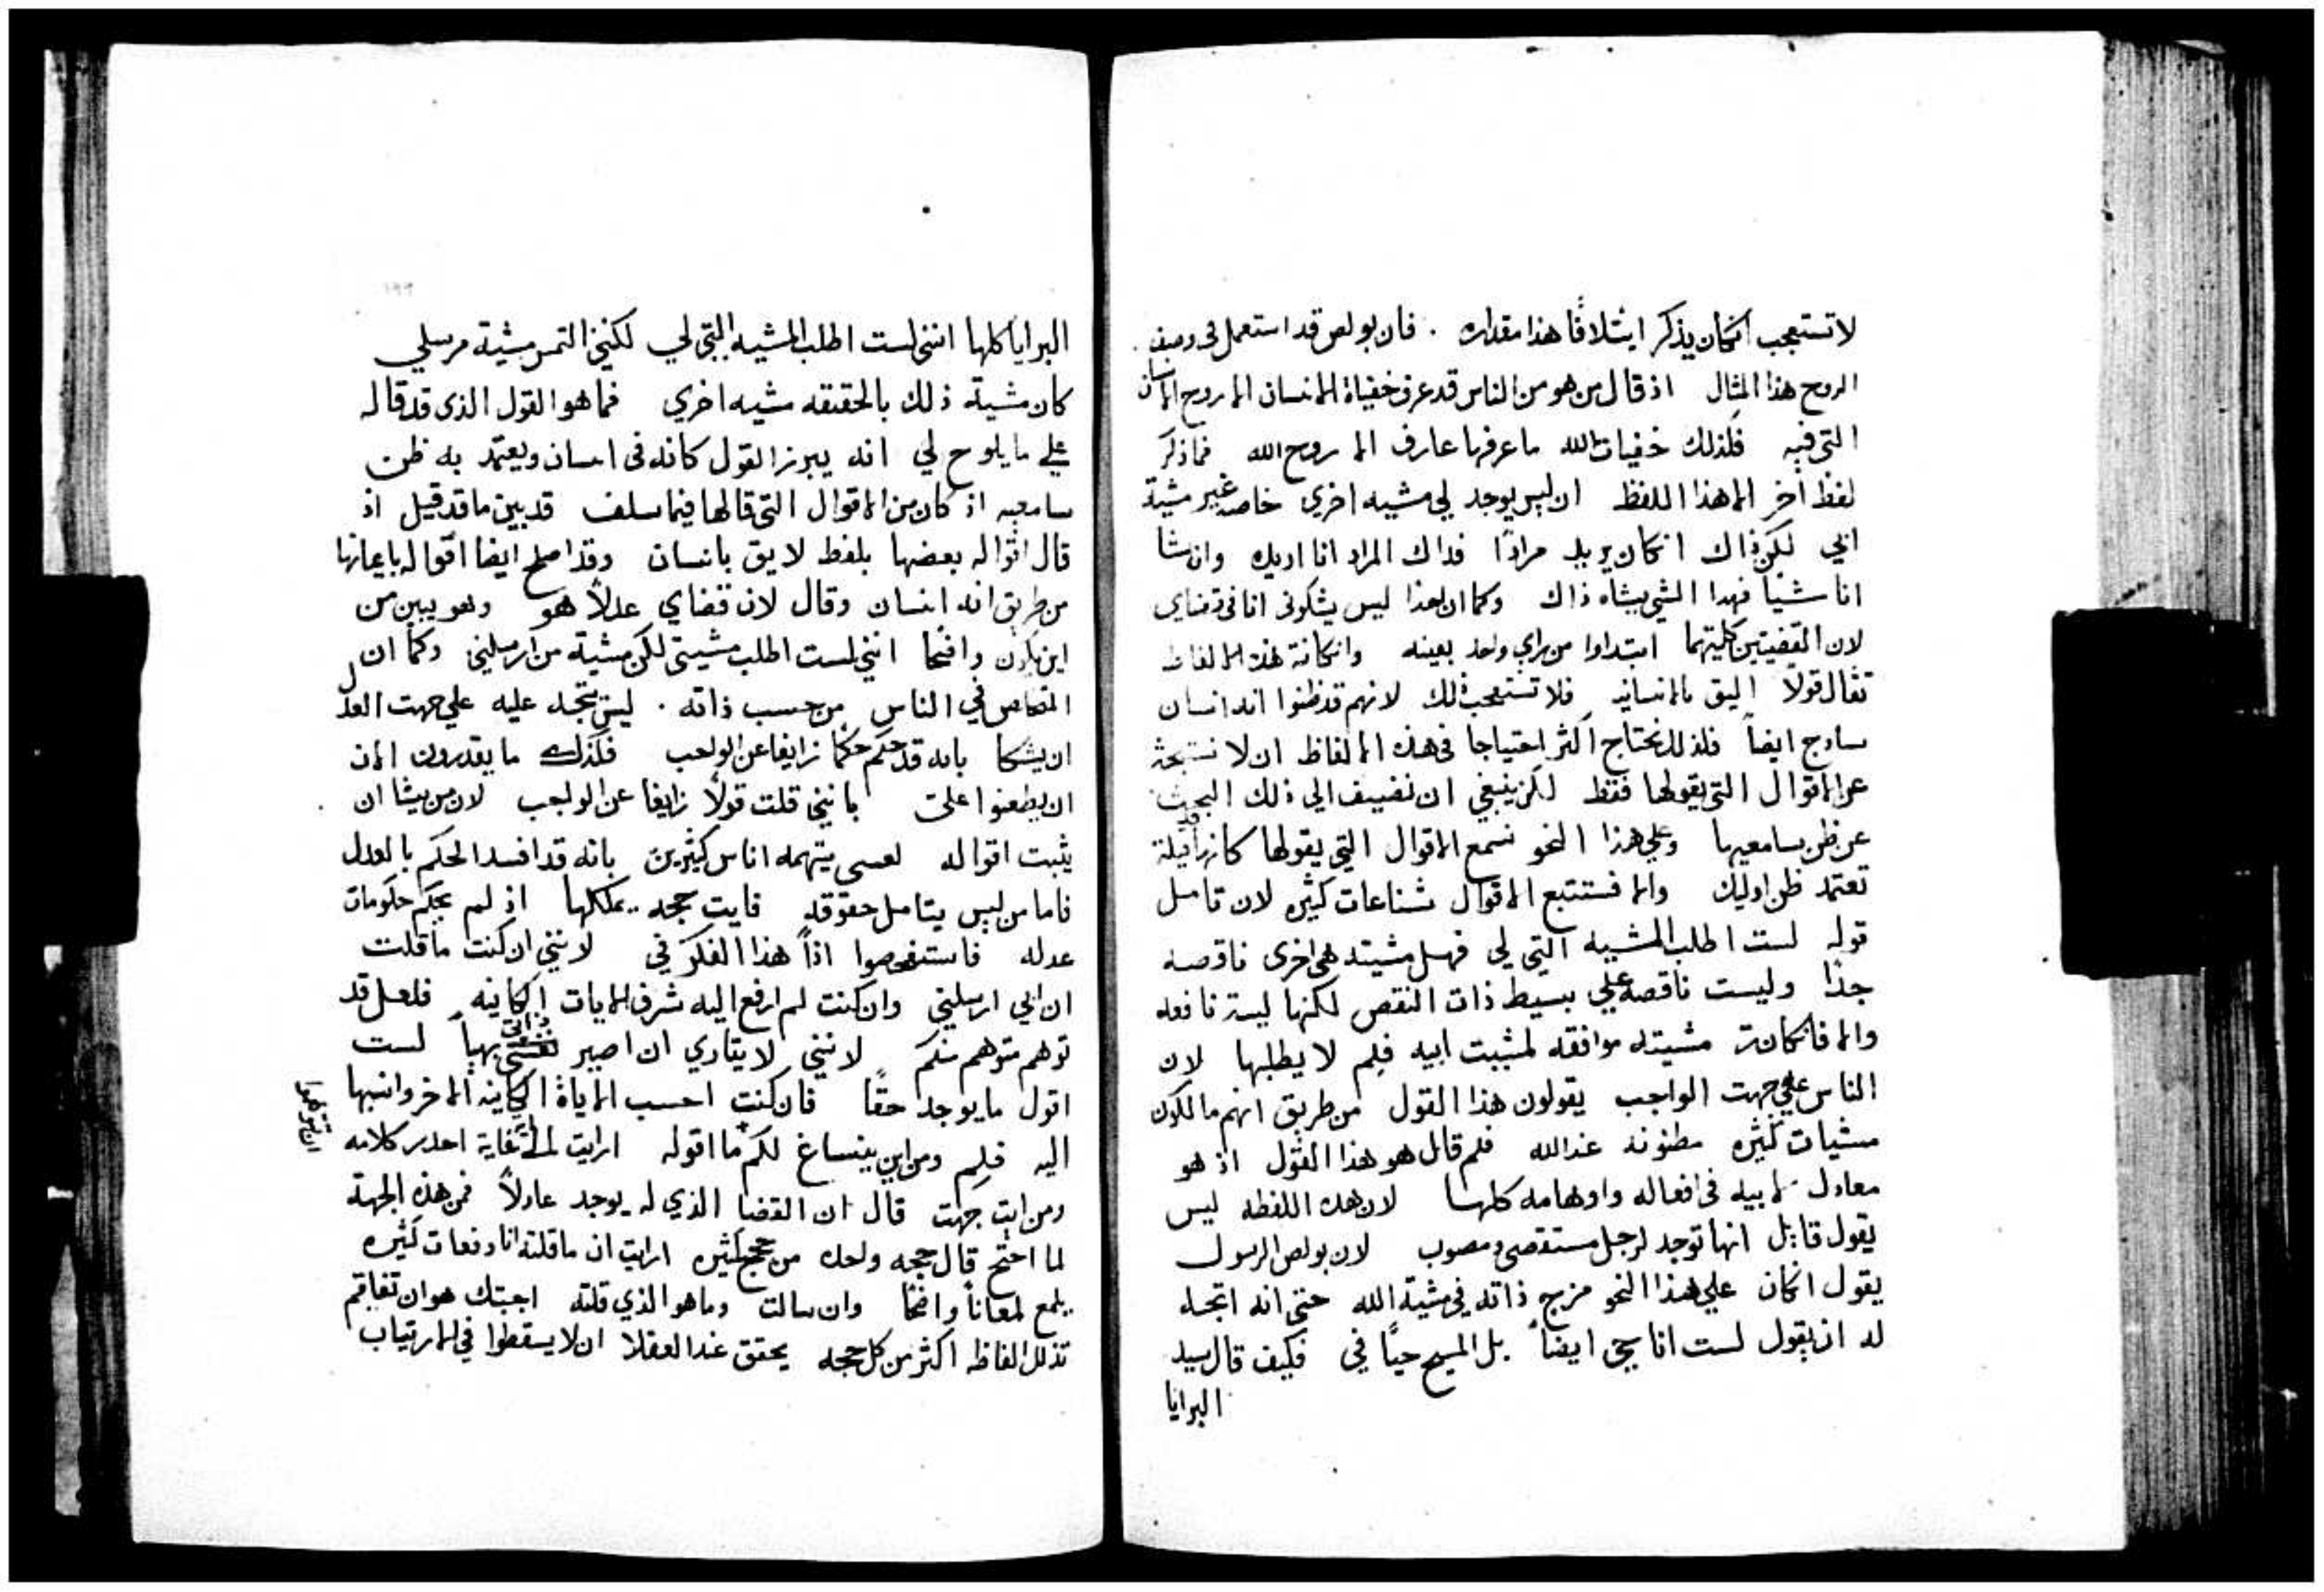 لا تستعجب اذ كان يذكر ايتلافًا هذا مقداره . فان بولص قد استعمل في وصف
الروح هذا المثال اذ قال من هو من الناس قد عرف خفياة الانسان الا روح الانسان
التي فيه فكذلك خفيات الله ما عرفها عارف الا روح الله فما ذكر
لفظ اخر الا هذا اللفظ ان ليس يوجد لي مشيه اخري خاصه غير مشية
ابي لكن ذاك ان كان يريد مرادًا فداك المراد انا اريده وان شا
انا شيًا فهدا الشي يشاه ذاك وكما ان هذا ليس يشكوني انا في قضاي
لان القضيتين كليتهما ابتداوا من راي واحد بعينه وان كانة هذه الالفاظ
تقال قولاً اليق بالانسانيه فلا تستعجب ذلك لانهم قد ظنوا انه انسان
سادج ايضاً فلذلك نحتاج اكثر احتياجا في هذه الالفاظ ان لا نستبحث
عن الاقوال التي يقولها فقط لكن ينبغي ان نضيف الي ذلك البحث
عن ظن سامعيها وعلي هذا النحو نسمع الاقوال التي يقولها كانها قد قيلة
تعتمد ظن اوليك والا فستتبع الاقوال شناعات كثيره لان تامل
قوله لست اطلب المشيه التي لي فهل مشيته هي اخرى ناقصه
جدًا وليست ناقصه علي بسيط ذات النقص لكنها ليسة نافعه
والا فان كانة مشيته موافقه لمشيت ابيه فلِم لا يطلبها لان
الناس علي جهت الواجب يقولون هذا القول من طريق انهم مالكون
مشيات كثيره مظنونه عند الله فلم قال هو هذا القول اذ هو
معادل لابيه في افعاله واوهامه كلها لان هده اللفظه ليس
يقول قايل انها توجد لرجل مستقصى ومصوب لان بولص الرسول
يقول ان كان علي هذا النحو مزج ذاته في مشية الله حتى انه اتجه
له ان يقول لست انا حي ايضاً بل المسيح حيًا في فكيف قال سيد
البرايا
البرايا كلها انني لست اطلب المشيه التي لي لكنني التمس مشية مرسلي
كان مشية ذلك بالحقيقه مشيه اخري فما هو القول الذي قد قاله
علي ما يلوح لي انه يبرز القول كانه في انسان ويعتمد به ظن
سامعيه اذ كان من الاقوال التي قالها فيما سلف قد بين ما قد قيل اذ
قال اقواله بعضها بلفظ لايق بانسان وقد اصلح ايضا اقواله بايعازها
من طريق انه انسان وقال لان قضاي عدلاً هو وهو يبين من
اين يكون واضحا انني لست اطلب مشيتي لكن مشية من ارسلني وكما ان
القصاص في الناس من حسب ذاته . ليس يتجه عليه علي جهت العدل
ان يشكا بانه قد حكم حكمًا زايفا عن الواجب فكذلك ما يقدرون الان
ان يطعنوا علي بانيني قلت قولاً زايفا عن الواجب لان من يشا ان
يثبت اقواله لعسى يتهمه اناس كثيرين بانه قد افسد الحكم بالعدل
فاما من ليس يتامل حقوقه فايت حجه يمكلها اذ لم يحكم حكومات
عدله فاستفحصوا اذاً هذا الفكر في لانني ان كنت ما قلت
ان ابي ارسلني وان كنت لم ارفع اليه شرف الايات الكاينه فلعل قد
توهم متوهم منكم لانني لا يتاري ان اصير ذاتي بهياً لست
اقول ما يوجد حقًا فان كنت احسب الاياة الكاينه لاخر وانسبها
اليه فلِم ومن اين ينساغ لكم ان تتوهموا ما اقوله ارايت لاي غاية احدر كلامه
ومن ايت جهت قال ان القضا الذي له يوجد عادلاً فمن هذه الجهة
لما احتج قال حجه واحده من حجج كثيره ارايت ان ما قلته انا دفعات كثيره
يلمع لمعاناً واضحًا وان سالت وما هو الذي قلته اجبتك هو ان تفاقم
تذلل الفاظه اكثر من كل حجه يحقق عند العقلا ان لا يسقطوا في الارتياب